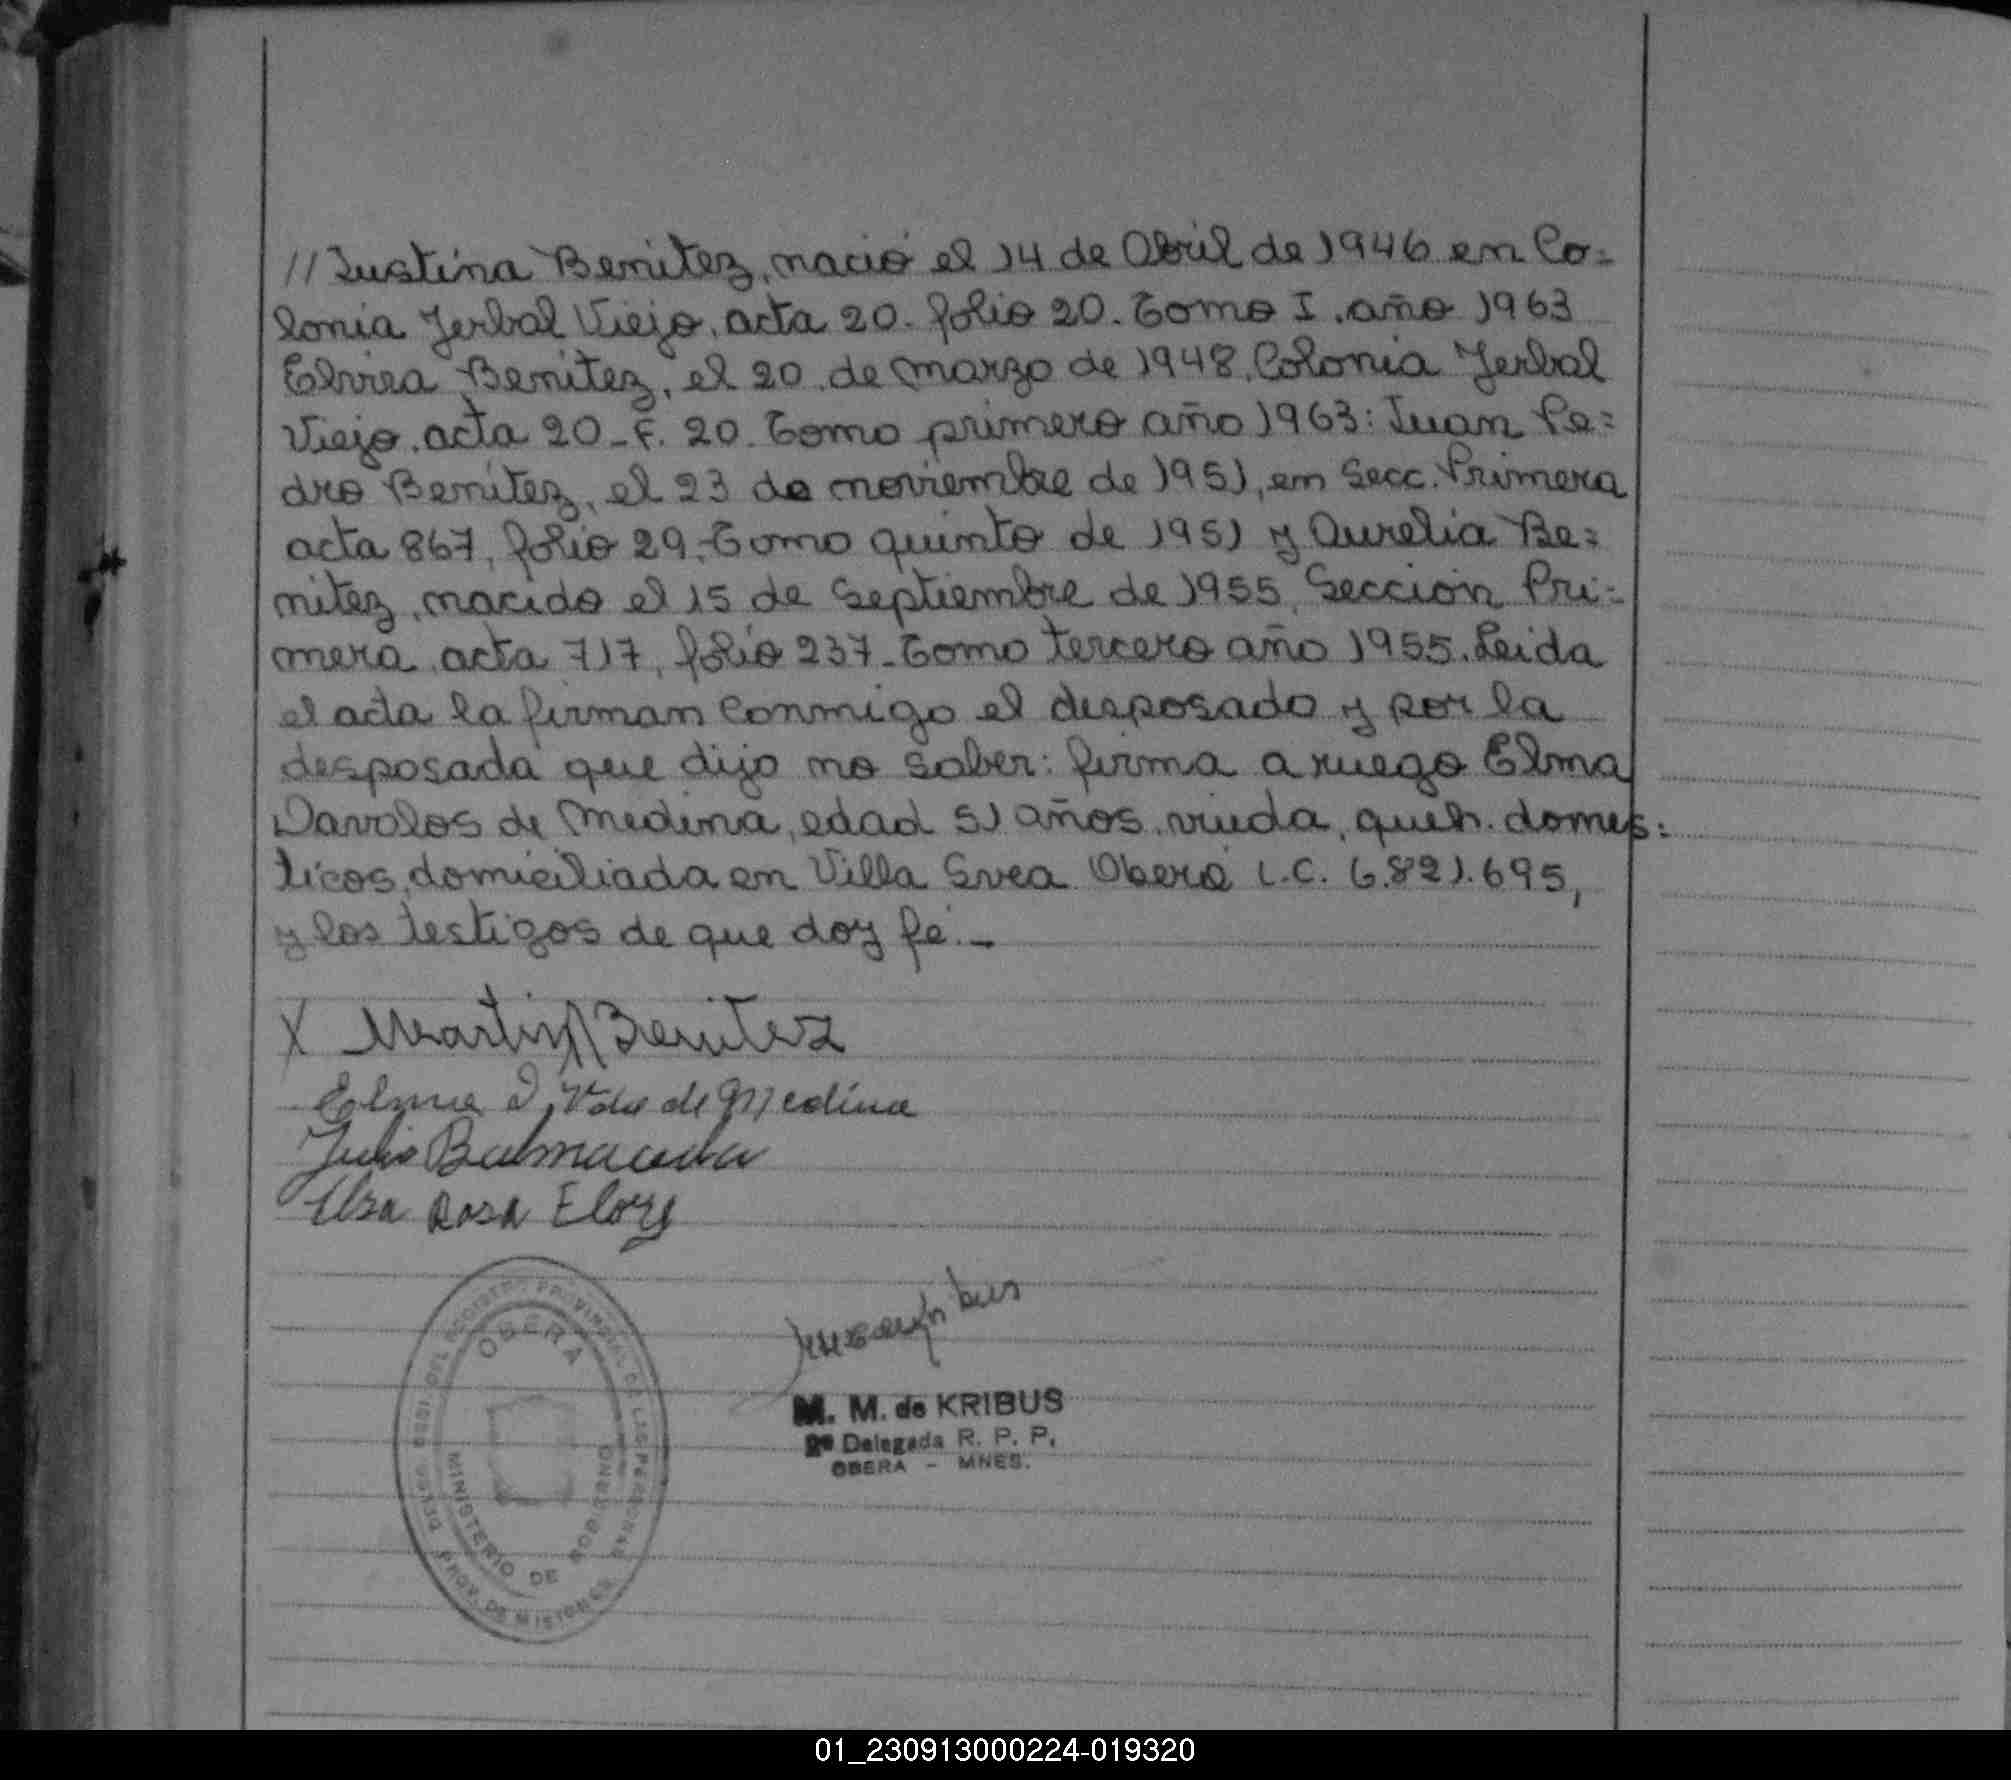 //Justina Benitez, nació el 14 de Abril de 1946 en Co=
lonia Yerbal Viejo, acta 20. folio 20. Tomo I. año 1963
Elvira Benitez, el 20 de Marzo de 1948, Colonia Yerbal
Viejo, acta 20 - F. 20. Tomo primero año 1963: Juan Pe=
dro Benitez, el 23 de noviembre de 1951, en Secc. Primera
acta 867, folio 29, Tomo quinto de 1951 y Aurelia Be=
nitez, nacido el 15 de Septiembre de 1955, Sección Pri=
mera, acta 717, folio 237 - Tomo tercero año 1955. Leida
el acta la firman conmigo el desposado y por la
desposada que dijo no saber: firma a ruego Elma
Davolos de Medina, edad 51 años, viuda, queh. domes=
ticos, domiciliada en Villa Svea Oberá L.C. 6.821.695,
y los testigos de que doy fé.-
X Martin Benitez
Elma D. Vda de Medina
Julio Balmaceda
Elsa Rosa Elory
OBERA
REGISTRO PROVINCIAL DE LAS PERSONAS
MINISTERIO DE GOBIERNO
PROV. DE MISIONES
M. M. de KRIBUS
2ª Delegada R. P. P.
OBERA - MNES.
01_230913000224-019320